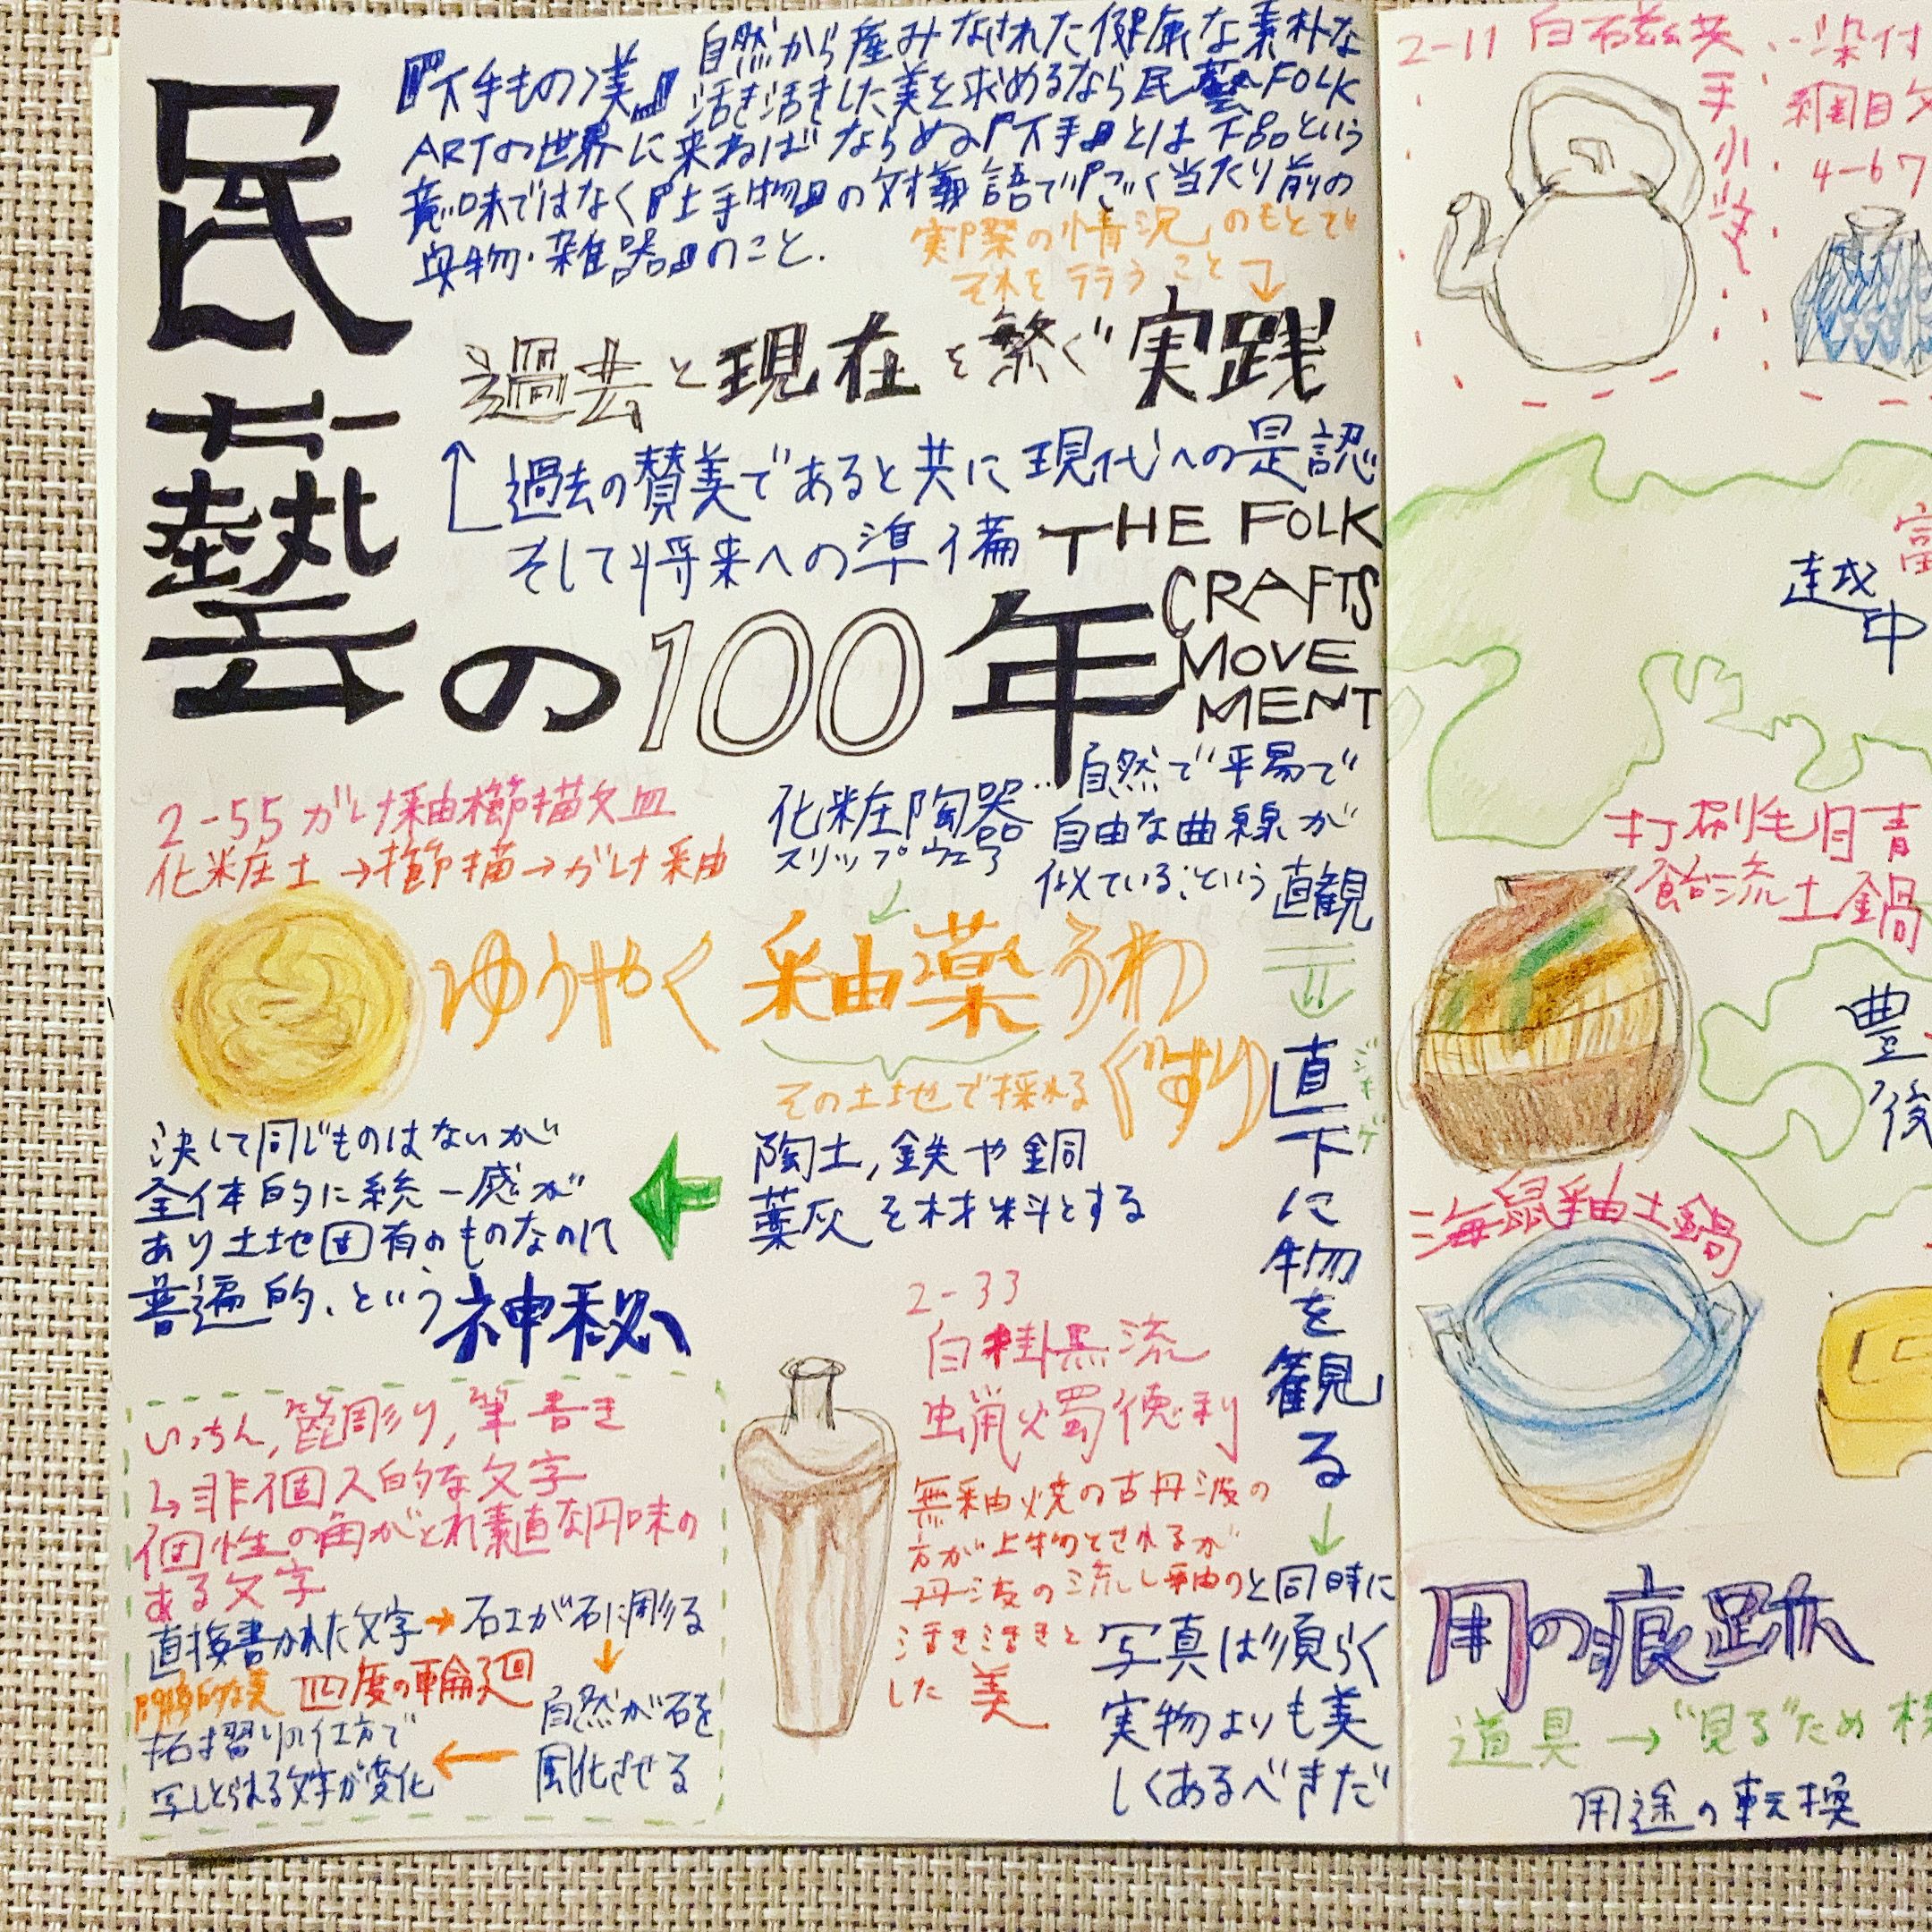 民藝の100年
『下手もの漢』自然から産みなされた健康な素朴な
活き活きした美を求めるなら民藝FOLK
ARTの世界に来ねばならぬ『下手』とは下品という
意味ではなく『上手物』の対義語で『ごく当たり前の
物・雑器』のこと.
実際の情況のもとで
それをラララうこと
過去と現在を繋ぐ実践
過去の賛美であると共に現代への是認
そして将来への準備
THE FOLK
CRAFTS
MOVE
MENT
2-55 がけ釉櫛描文皿
化粧土→櫛描→がけ釉
化粧陶器
スリップウェア
自然で平易で
自由な曲線が
似ている;という直観
ゆうやく 釉薬 うわぐすり
その土地で採れる
陶土,鉄や銅
藁灰を材料とする
決して同じものはないが
全体的に統一感が
あり土地固有のものなのに
普遍的、という神秘
直下に物を観る
ジキゲ
と同時に
写真は須らく
実物よりも美
しくあるべきだ
2-33
白掛黒流
蝋燭徳利
無釉焼の古丹波の
方が上物とされるが
丹波の流し釉の
活き活きと
した 美
いっちん,箆彫り,筆書き
↳非個人的な文字
個性の角がとれ素直な円味の
ある文字
直接書かれた文字→石工が石に彫る
間接的な美 四度の輪廻
自然が石を
風化させる
拓摺りの仕方で
写しとられる文字が変化
2-11 白磁
手
小
染付
網目文
4-67
越中
富
打刷毛目青
飴流土鍋
豊後
海鼠釉土鍋
用の痕跡
道具→"見る"ため
用途の転換